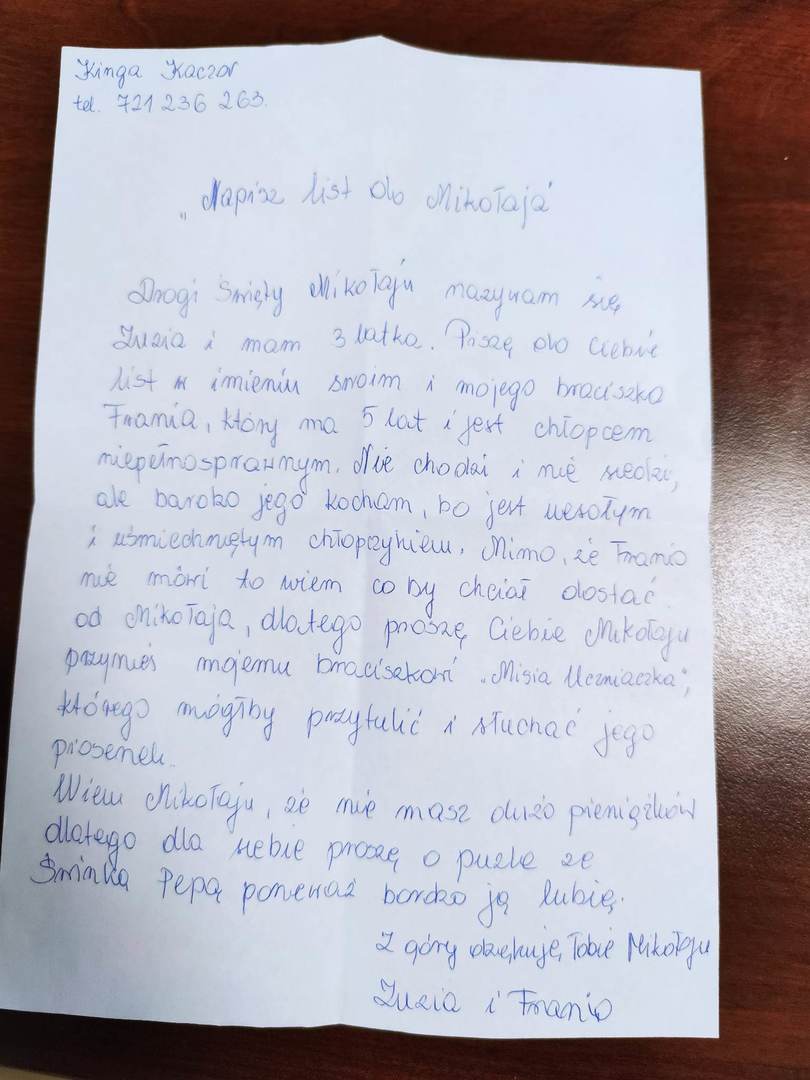 Kinga Kaczor
tel. 721 236 263.
„Napisz list do Mikołaja"
Drogi Święty Mikołaju nazywam się
Zuzia i mam 3 latka. Piszę do Ciebie
list w imieniu swoim i mojego braciszka
Frania, który ma 5 lat i jest chłopcem
niepełnosprawnym. Nie chodzi i nie siedzi,
ale bardzo jego kocham, bo jest wesołym
i uśmiechniętym chłopczykiem. Mimo, że Franio
nie mówi to wiem co by chciał dostać
od Mikołaja, dlatego proszę Ciebie Mikołaju
przynieś mojemu braciszkowi „Misia Uczniaczka",
którego mógłby przytulić i słuchać jego
piosenek.
Wiem Mikołaju, że nie masz dużo pieniążków
dlatego dla siebie proszę o puzle ze
Świnką Pepą ponieważ bardzo ją lubię.
Z góry dziękuję Tobie Mikołaju
Zuzia i Franio